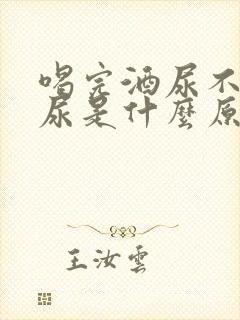 喝完酒尿不
尿是什麼原
王汝雲